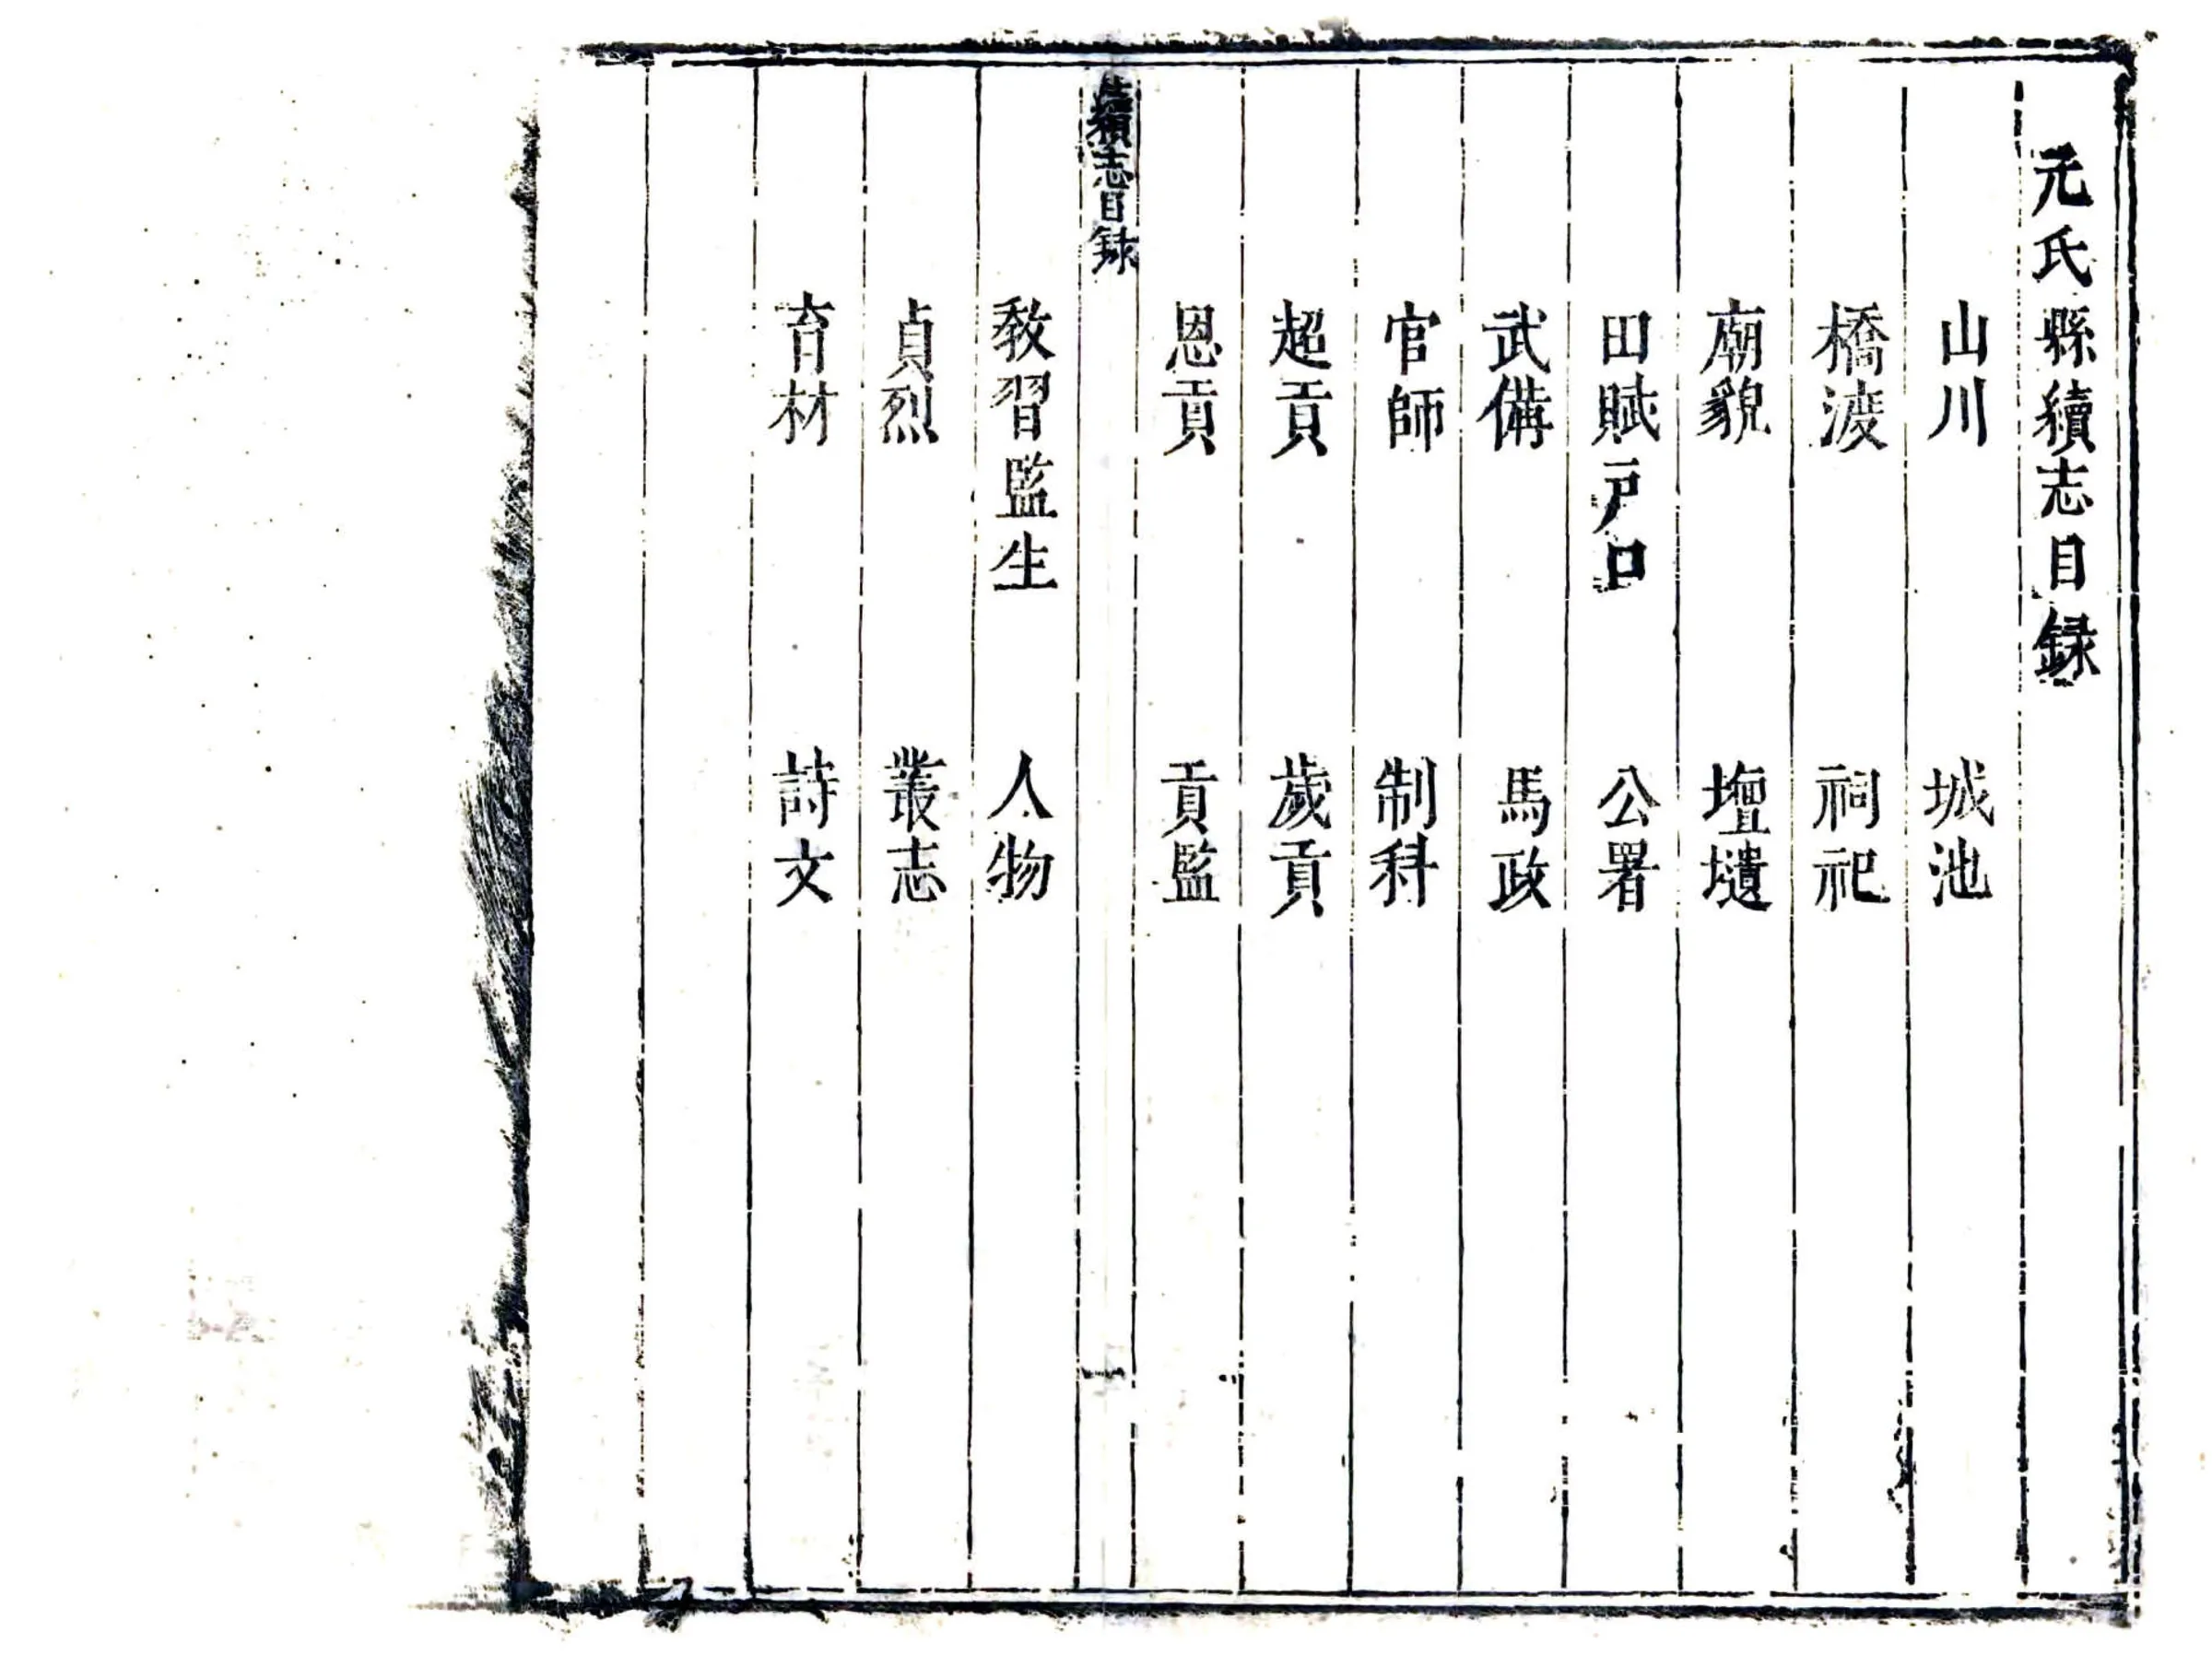 元氏縣續志目録
山川　城池
橋渡　祠祀
廟貌　壇壝
田賦戸口　公署
武備　馬政
官師　制科
超貢　歲貢
恩貢　貢監
續志目録
一
教習監生　人物
貞烈　叢志
育材　詩文